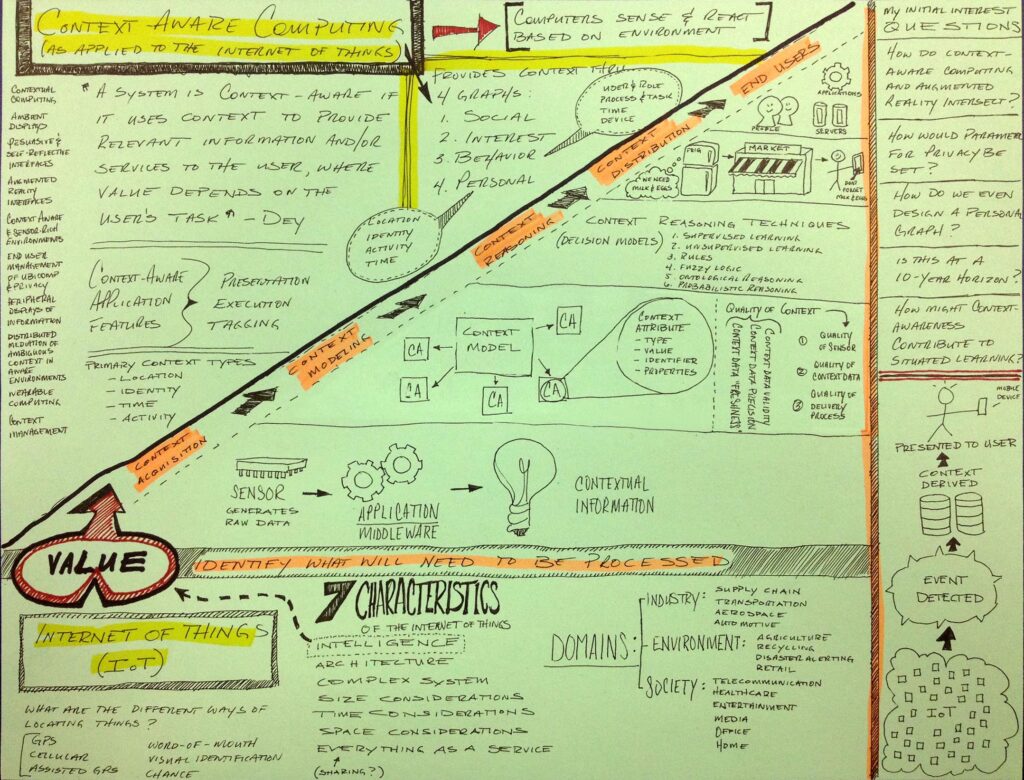 CONTEXT AWARE COMPUTING
(AS APPLIED TO THE INTERNET OF THINGS)
COMPUTERS SENSE & REACT
BASED ON ENVIRONMENT
CONTEXTUAL
COMPUTING
AMBIENT
DISPLAYS
PERSUASIVE &
SELF-REFLECTIVE
INTERFACES
AUGMENTED
REALITY
INTERFACES
CONTEXT AWARE
& SENSOR-RICH
ENVIRONMENTS
END USER
MANAGEMENT
OF UBICOMP
& PRIVACY
PERIPHERAL
DISPLAYS OF
INFORMATION
DISTRIBUTED
MEDIATION OF
AMBIGUOUS
CONTEXT IN
AWARE
ENVIRONMENTS
WEARABLE
COMPUTING
CONTEXT
MANAGEMENT
"A SYSTEM IS CONTEXT-AWARE IF
IT USES CONTEXT TO PROVIDE
RELEVANT INFORMATION AND/OR
SERVICES TO THE USER, WHERE
VALUE DEPENDS ON THE
USER'S TASK" - DEY
CONTEXT-AWARE
APPLICATION
FEATURES
PRESENTATION
EXECUTION
TAGGING
PRIMARY CONTEXT TYPES
- LOCATION
- IDENTITY
- TIME
- ACTIVITY
PROVIDES CONTEXT THRU
4 GRAPHS:
1. SOCIAL
2. INTEREST
3. BEHAVIOR
4. PERSONAL
USER & ROLE
PROCESS & TASK
TIME
DEVICE
LOCATION
IDENTITY
ACTIVITY
TIME
CONTEXT
ACQUISITION
CONTEXT
MODELING
CONTEXT
REASONING
CONTEXT
DISTRIBUTION
END USERS
APPLICATIONS
PEOPLE
SERVERS
WE NEED
MILK & EGGS
FRIG
MARKET
DON'T
FORGET
MILK & EGGS
CONTEXT REASONING TECHNIQUES
(DECISION MODELS)
1. SUPERVISED LEARNING
2. UNSUPERVISED LEARNING
3. RULES
4. FUZZY LOGIC
5. ONTOLOGICAL REASONING
6. PROBABILISTIC REASONING
CONTEXT
MODEL
CA
CA
CA
CA
CA
CONTEXT
ATTRIBUTE
- TYPE
- VALUE
- IDENTIFIER
- PROPERTIES
QUALITY OF CONTEXT
CONTEXT DATA VALIDITY
CONTEXT DATA PRECISION
CONTEXT DATA "FRESHNESS"
1 QUALITY
OF SENSOR
2 QUALITY OF
CONTEXT DATA
3 QUALITY OF
DELIVERY
PROCESS
SENSOR
GENERATES
RAW DATA
APPLICATION
MIDDLEWARE
CONTEXTUAL
INFORMATION
VALUE
IDENTIFY WHAT WILL NEED TO BE PROCESSED
INTERNET OF THINGS
(IoT)
WHAT ARE THE DIFFERENT WAYS OF
LOCATING THINGS?
GPS
CELLULAR
ASSISTED GPS
WORD-OF-MOUTH
VISUAL IDENTIFICATION
CHANCE
7 CHARACTERISTICS
OF THE INTERNET OF THINGS
INTELLIGENCE
ARCHITECTURE
COMPLEX SYSTEM
SIZE CONSIDERATIONS
TIME CONSIDERATIONS
SPACE CONSIDERATIONS
EVERYTHING AS A SERVICE
(SHARING?)
DOMAINS:
INDUSTRY:
SUPPLY CHAIN
TRANSPORTATION
AEROSPACE
AUTOMOTIVE
ENVIRONMENT:
AGRICULTURE
RECYCLING
DISASTER ALERTING
RETAIL
SOCIETY:
TELECOMMUNICATION
HEALTHCARE
ENTERTAINMENT
MEDIA
OFFICE
HOME
MY INITIAL INTEREST
QUESTIONS
HOW DO CONTEXT-
AWARE COMPUTING
AND AUGMENTED
REALITY INTERSECT?
HOW WOULD PARAMETER
FOR PRIVACY BE
SET?
HOW DO WE EVEN
DESIGN A PERSONAL
GRAPH?
IS THIS AT A
10-YEAR HORIZON?
HOW MIGHT CONTEXT-
AWARENESS
CONTRIBUTE TO
SITUATED LEARNING?
MOBILE
DEVICE
PRESENTED TO USER
CONTEXT
DERIVED
EVENT
DETECTED
IoT